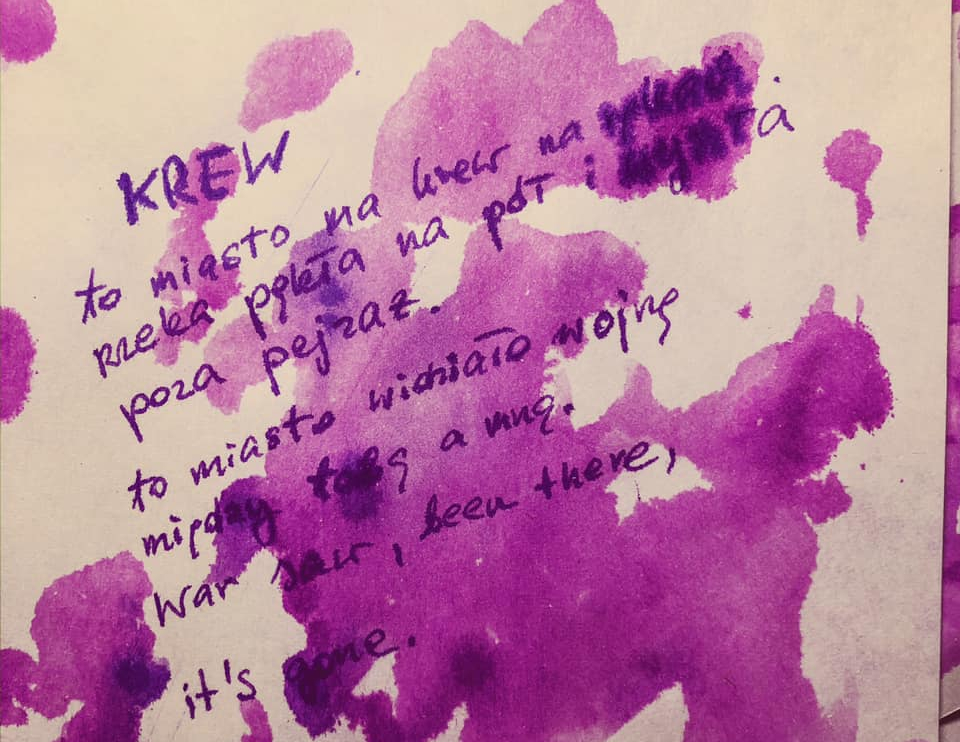 KREW
to miasto ma krew na rękach.
rzeka pękła na pół i wyszła
poza pejzaż.
to miasto widziało wojnę
między tobą a mną.
War saw, been there,
it's gone.